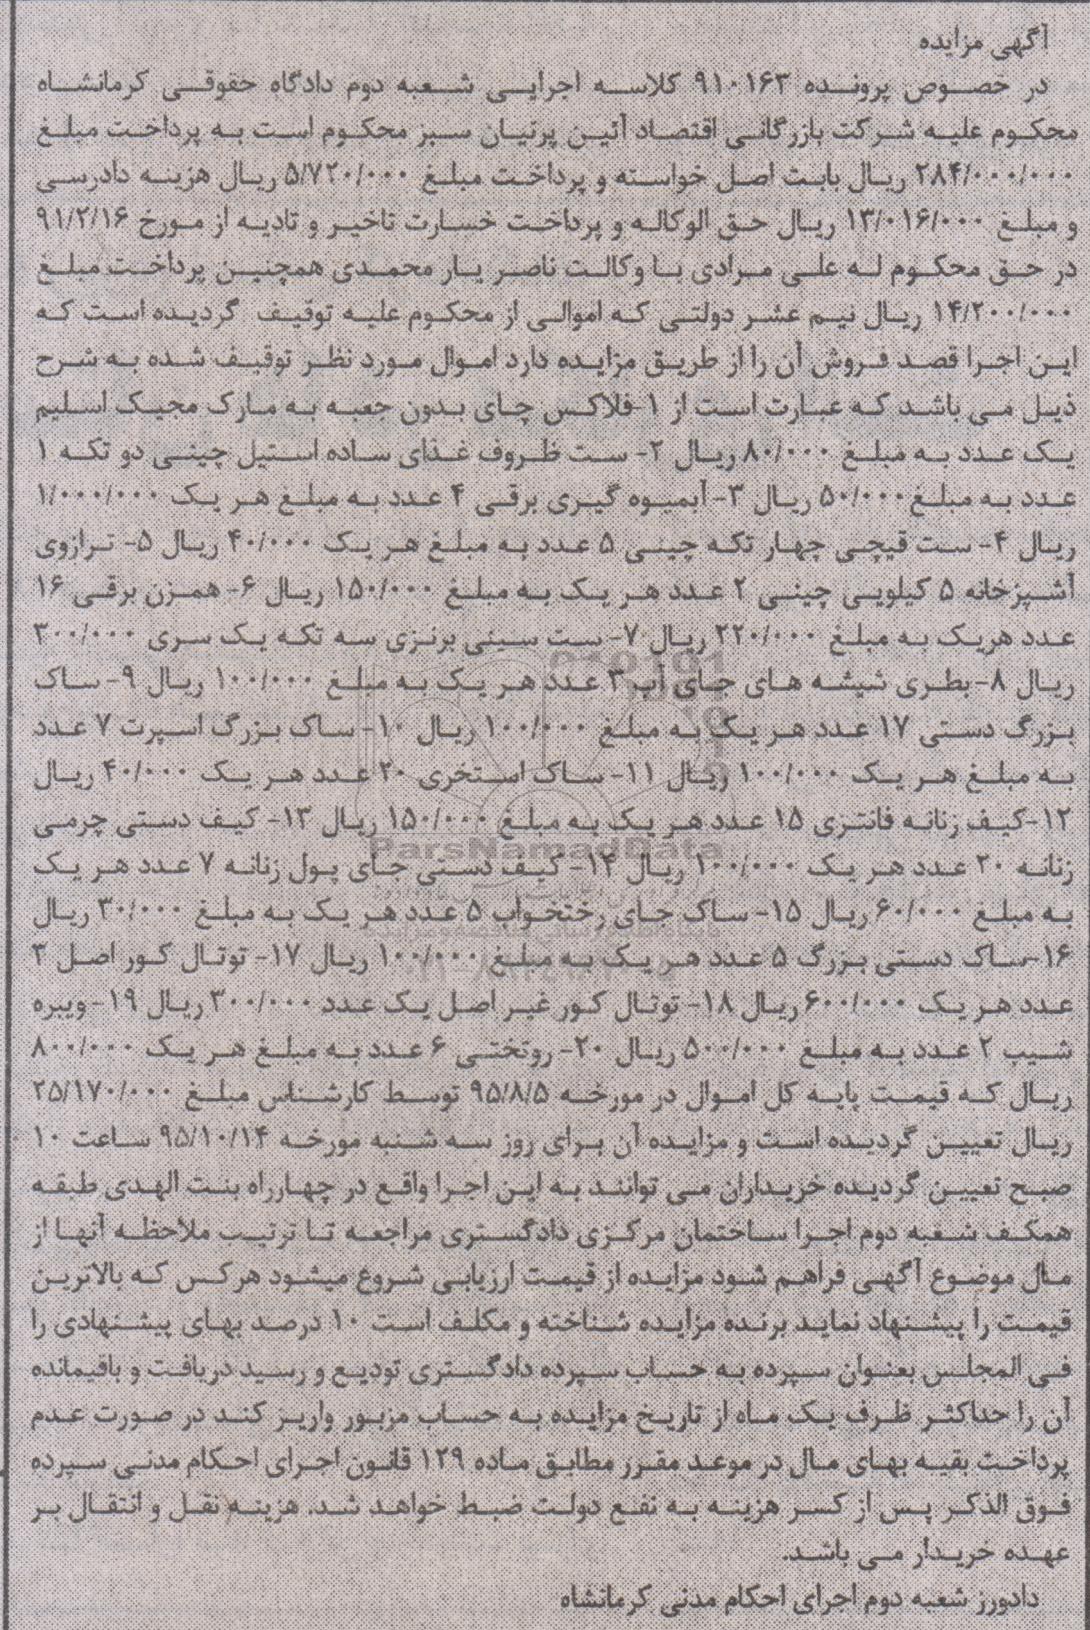 آگهی مزایده
در خصوص پرونده ۹۱۰۱۶۳ کلاسه اجرایی شعبه دوم دادگاه حقوقی کرمانشاه
محکوم علیه شرکت بازرگانی اقتصاد آئین پرتیان سبز محکوم است به پرداخت مبلغ
۲۸۴/۰۰۰/۰۰۰ ریال بابت اصل خواسته و پرداخت مبلغ ۵/۷۲۰/۰۰۰ ریال هزینه دادرسی
و مبلغ ۱۳/۰۱۶/۰۰۰ ریال حق الوکاله و پرداخت خسارت تاخیر و تادیه از مورخ ۹۱/۲/۱۶
در حق محکوم له علی مرادی با وکالت ناصر یار محمدی همچنین پرداخت مبلغ
۱۴/۲۰۰/۰۰۰ ریال نیم عشر دولتی که اموالی از محکوم علیه توقیف گردیده است که
این اجرا قصد فروش آن را از طریق مزایده دارد اموال مورد نظر توقیف شده به شرح
ذیل می باشد که عبارت است از ۱-فلاکس چای بدون جعبه به مارک مجیک اسلیم
یک عدد به مبلغ ۸۰/۰۰۰ ریال ۲- ست ظروف غذای ساده استیل چینی دو تکه ۱
عدد به مبلغ ۵۰/۰۰۰ ریال ۳- آبمیوه گیری برقی ۴ عدد به مبلغ هر یک ۱/۰۰۰/۰۰۰
ریال ۴- ست قیچی چهار تکه چینی ۵ عدد به مبلغ هر یک ۴۰/۰۰۰ ریال ۵- ترازوی
آشپزخانه ۵ کیلویی چینی ۲ عدد هر یک به مبلغ ۱۵۰/۰۰۰ ریال ۶- همزن برقی ۱۶
عدد هریک به مبلغ ۲۲۰/۰۰۰ ریال ۷- ست سینی برنزی سه تکه یک سری ۳۰۰/۰۰۰
ریال ۸-بطری شیشه های جای آب ۳ عدد هر یک به مبلغ ۱۰۰/۰۰۰ ریال ۹- ساک
بزرگ دستی ۱۷ عدد هر یک به مبلغ ۱۰۰/۰۰۰ ریال ۱۰- ساک بزرگ اسپرت ۷ عدد
به مبلغ هر یک ۱۰۰/۰۰۰ ریال ۱۱- ساک استخری ۲۰ عدد هر یک ۴۰/۰۰۰ ریال
۱۲-کیف زنانه فانتزی ۱۵ عدد هر یک به مبلغ ۱۵۰/۰۰۰ ریال ۱۳- کیف دستی چرمی
زنانه ۲۰ عدد هر یک ۱۰۰/۰۰۰ ریال ۱۴- کیف دستی جای پول زنانه ۷ عدد هر یک
به مبلغ ۶۰/۰۰۰ ریال ۱۵- ساک جای رختخواب ۵ عدد هر یک به مبلغ ۳۰/۰۰۰ ریال
۱۶-ساک دستی بزرگ ۵ عدد هر یک به مبلغ ۱۰۰/۰۰۰ ریال ۱۷- توتال کور اصل ۳
عدد هر یک ۶۰۰/۰۰۰ ریال ۱۸- توتال کور غیر اصل یک عدد ۳۰۰/۰۰۰ ریال ۱۹- ویبره
شیپ ۲ عدد به مبلغ ۵۰۰/۰۰۰ ریال ۲۰- روتختی ۶ عدد به مبلغ هر یک ۸۰۰/۰۰۰
ریال که قیمت پایه کل اموال در مورخه ۹۵/۸/۵ توسط کارشناس مبلغ ۲۵/۱۷۰/۰۰۰
ریال تعیین گردیده است و مزایده آن برای روز سه شنبه مورخه ۹۵/۱۰/۱۴ ساعت ۱۰
صبح تعیین گردیده خریداران می توانند به این اجرا واقع در چهارراه بنت الهدی طبقه
همکف شعبه دوم اجرا ساختمان مرکزی دادگستری مراجعه تا ترتیب ملاحظه آنها از
مال موضوع آگهی فراهم شود مزایده از قیمت ارزیابی شروع میشود هرکس که بالاترین
قیمت را پیشنهاد نماید برنده مزایده شناخته و مکلف است ۱۰ درصد بهای پیشنهادی را
فی المجلس بعنوان سپرده به حساب سپرده دادگستری تودیع و رسید دریافت و باقیمانده
آن را حداکثر ظرف یک ماه از تاریخ مزایده به حساب مزبور واریز کند در صورت عدم
پرداخت بقیه بهای مال در موعد مقرر مطابق ماده ۱۲۹ قانون اجرای احکام مدنی سپرده
فوق الذکر پس از کسر هزینه به نفع دولت ضبط خواهد شد. هزینه نقل و انتقال بر
عهده خریدار می باشد.
دادورز شعبه دوم اجرای احکام مدنی کرمانشاه
ParsNamadData